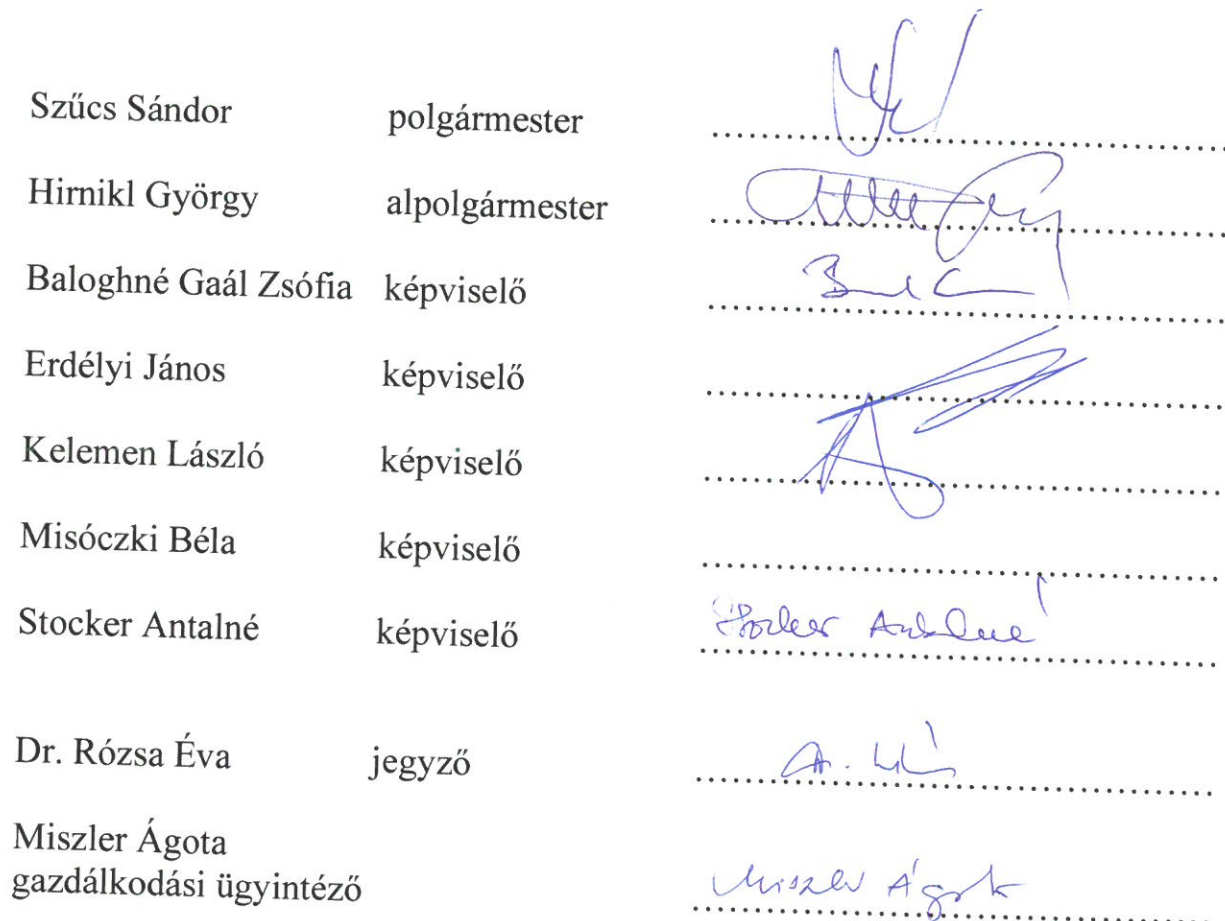 Szűcs Sándor polgármester
Hirnikl György alpolgármester
Baloghné Gaál Zsófia képviselő
Erdélyi János képviselő
Kelemen László képviselő
Misóczki Béla képviselő
Stocker Antalné képviselő Stocker Antalné
Dr. Rózsa Éva jegyző
Miszler Ágota
gazdálkodási ügyintéző Miszler Ágota